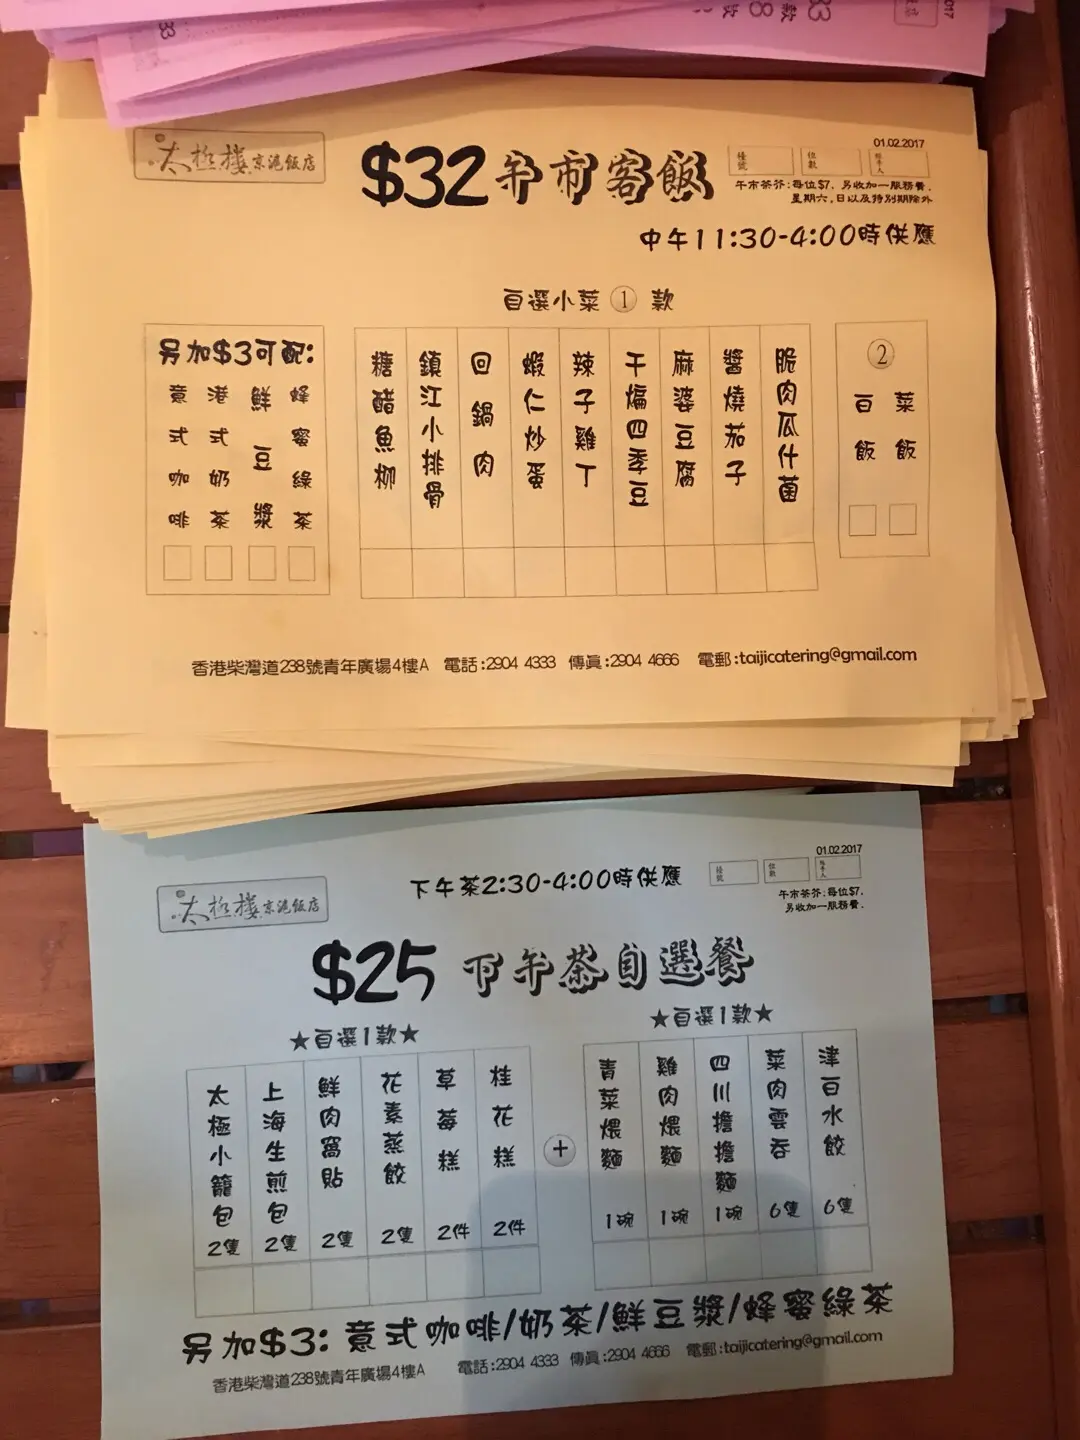 2017
太極樓京滬飯店
$32午市客飯
檯號
位數
經手人
01.02.2017
午市茶芥:每位$7. 另收加一服務費.
星期六,日以及特別期除外
中午11:30-4:00時供應
自選小菜 1 款
另加$3可配:
意式咖啡
港式奶茶
鮮豆漿
蜂蜜綠茶
糖醋魚柳
鎮江小排骨
回鍋肉
蝦仁炒蛋
辣子雞丁
干煸四季豆
麻婆豆腐
醬燒茄子
脆肉瓜什菌
2
白飯
菜飯
香港柴灣道238號青年廣場4樓A 電話:2904 4333 傳真:2904 4666 電郵:taijicatering@gmail.com
太極樓京滬飯店
下午茶2:30-4:00時供應
檯號
位數
經手人
01.02.2017
午市茶芥:每位$7.
另收加一服務費.
$25 下午茶自選餐
★自選1款★
太極小籠包 2隻
上海生煎包 2隻
鮮肉窩貼 2隻
花素蒸餃 2隻
草莓糕 2件
桂花糕 2件
+
★自選1款★
青菜煨麵 1碗
雞肉煨麵 1碗
四川擔擔麵 1碗
菜肉雲吞 6隻
津白水餃 6隻
另加$3: 意式咖啡/奶茶/鮮豆漿/蜂蜜綠茶
香港柴灣道238號青年廣場4樓A 電話:2904 4333 傳真:2904 4666 電郵:taijicatering@gmail.com